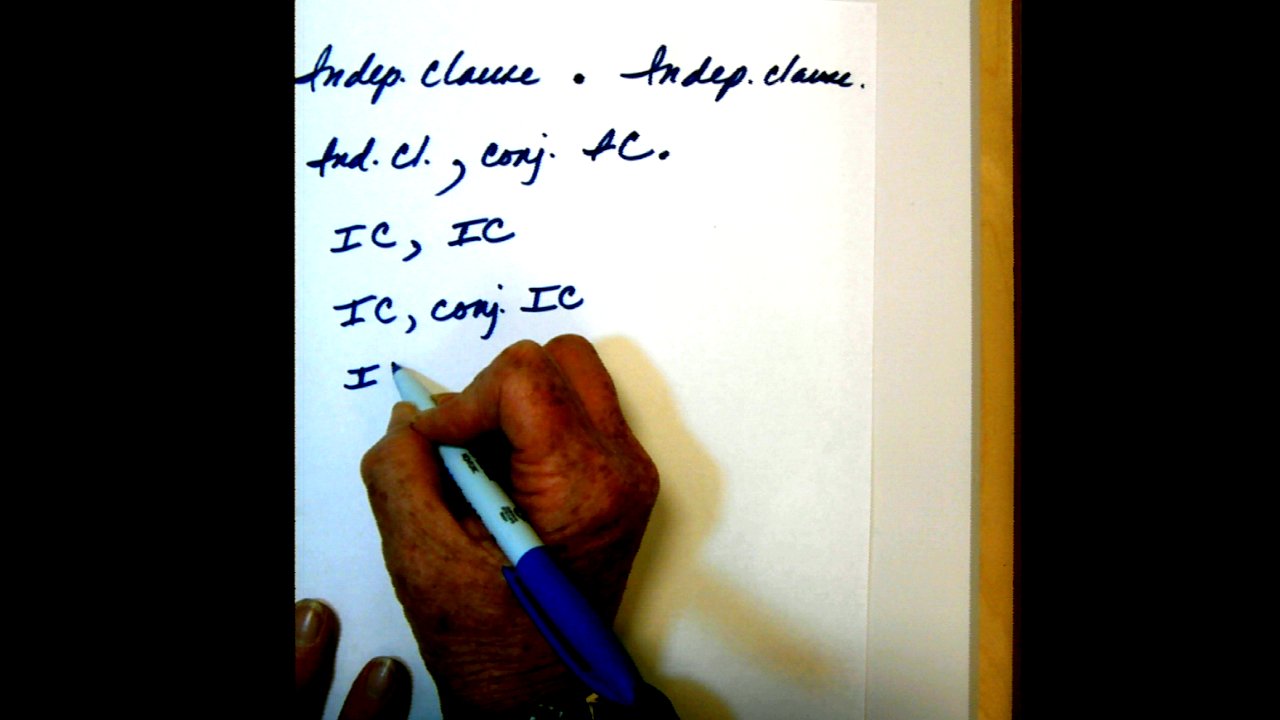 Indep. clause . Indep. clause.
Ind. cl. , conj. IC.
IC, IC
IC, conj. IC
I